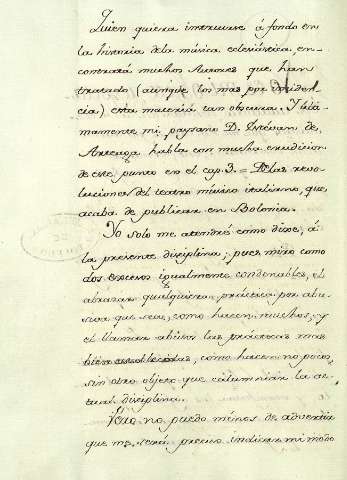 Quien quiera instruirse á fondo en
la historia dela música eclesiástica en-
contrará muchos Autores que han
tratado (aunque los mas por inciden-
cia) esta materia tan obscura. Y ulti-
mamente mi paysano D. Estévan de
Arteaga habla con mucha erudicion
de este punto en el cap. 3. = De las revo-
luciones del teatro músico italiano, que
acaba de publicar en Bolonia.
Yo solo me atendré como dixe, á
la presente disciplina; pues miro como
dos excesos igualmente condenables, el
abrazar qualquiera práctica por abu-
siva que sea, como hacen muchos, y
el llamar abusos las prácticas mas
bien establecidas, como hacen no pocos
sin otro objeto que calumniar la ac-
tual disciplina.
Pero no puedo ménos de advertir
que me será preciso indicar mi modo